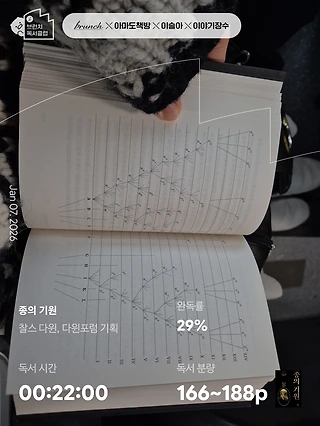 브런치
독서클럽
brunch × 아마도책방 × 이슬아 × 이야기장수
Jan 07, 2026
종의 기원
찰스 다윈, 다윈포럼 기획
완독률
29%
독서 시간
00:22:00
독서 분량
166~188p
종의 기원